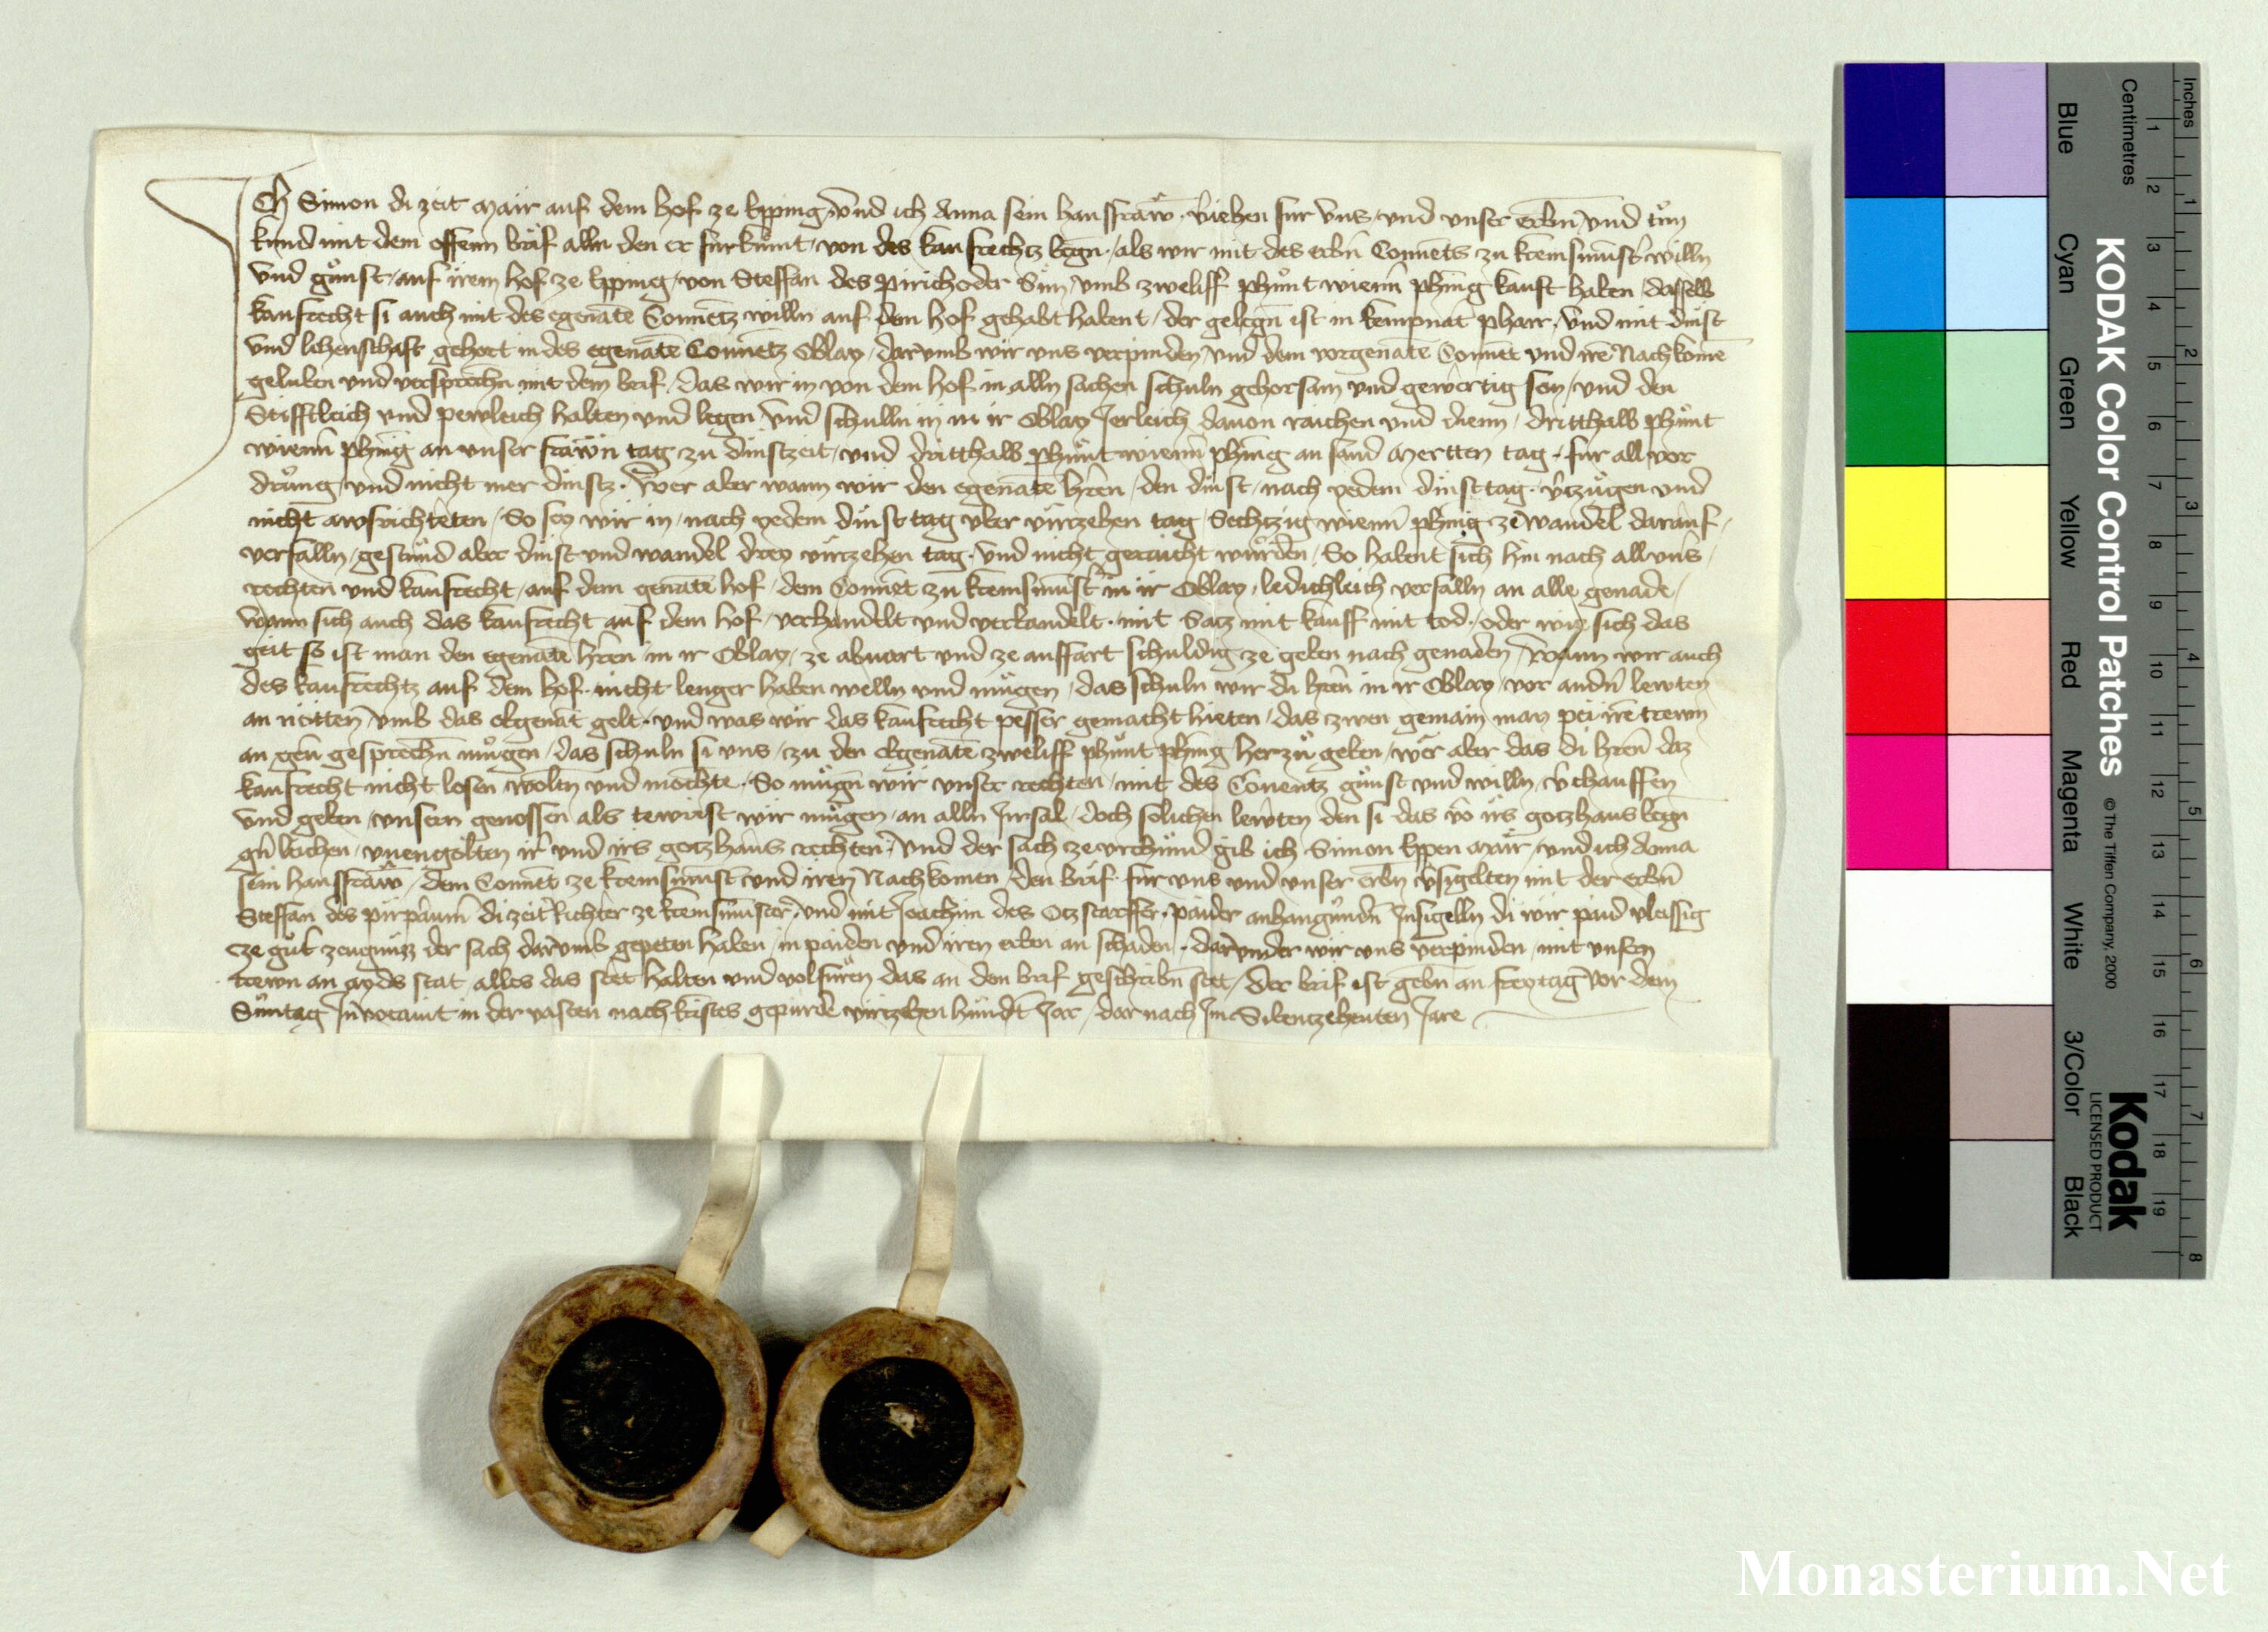 Ich Simon di zeit Mair auf dem hof ze Epping, vnd ich Anna sein hausfraw, veriehen fur vns, vnd vnser erbn, vnd tun
kund mit dem offenn brif alln den er furkumt, von des kaufrechtz wegn, als wir mit des erbn Conuents zu kremsmunst willn
vnd gunst, auf irem hof ze Epping, von Steffan des Pirichoder Sun, vmb zweliff phunt wienn phenig kauft haben, dasselb
kaufrecht si auch mit des egenate Conuetz willn auf dem hof gehabt habent, der gelegn ist in kempnat pharr, vnd mit dinst
vnd lehenschaft gehort in des egenate Conuetz Oblay, darumb wir vns verpinden, vnd dem vorgenate Conuet vnd ire Nachkome
geluben vnd versprechn mit dem brif, das wir in von dem hof in alln sachen schuln gehorsam vnd gewertig sein, vnd den
Stifftleich vnd pewleich halten vnd legen vnd schulln in in ir Oblay Jerleich dauon raichen vnd dienn, dritthalb phunt
wienn phenig an vnser frawn tag zu dinstzeit, vnd dritthalb phunt wienn phenig an sand Mertten tag, fur all vor
drung, vnd nicht mer dinstz. Wer aber wann wir den egenate hren, den dinst, nach yedem dinst tag, vertzugen vnd
nicht awsrichteten, So sey wir in, nach yedem dinst tag vber virtzehen tag, Sechtzig wienn phenig ze wandel darauf,
verfalln, gestund aber dinst vnd wandel drey virtzehen tag, vnd nicht geraicht wurden, So habent sich hin nach all vns,
rechten vnd kaufrecht, auf dem genate hof, dem Conuet zu kremsmunst in ir Oblay, ledichleich verfalln an alle genade,
Wann sich auch das kaufrecht auf dem hof, verhandelt vnd verkandelt, mit Satz mit kauff mit tod, oder wie sich das
geit so ist man den egenate hren in ir Oblay, ze abuart vnd ze auffart schuldig ze geben nach genaden, Wann wir auch
des kaufrechtz auf dem hof, nicht lenger haben welln vnd mugen, das schuln wir di hren in ir Oblay, vor andn lewten
an neitten, vmb das obgenat gelt, vnd was wir das kaufrecht pesser gemacht hieten, das zwen gemain man pei ire trewn
an gen gesprechn mugen, das schuln si vns, zu den obgenate zweliff phunt phenig herzu geben, wer aber das di hren daz
kaufrecht nicht losen wolten vnd mochte, So mugn wir vnser rechten, mit des Conentz gunst vnd willn, verchauffen
vnd geben, vnsern genossen als tewrist wir mugen, an alln Irrsal, doch solichen lewten den si das vo irs gotzhaus wegn
gern leichen, vnengolten ir vnd irs gotzhaus rechten, Vnd der sach ze vrchund gib ich Simon Eppen mair, vnd ich Anna
sein hausfraw, dem Conuet ze kremsmunst vnd iren Nachkomen, den brif fur vns vnd vnser erbn versigelten mit der erbn
Steffan des pirpaum di zeit Richter ze kremsmunster, vnd mit Joachim des Otzstarffer, paider anhangundn Insigelln di wir paid vleissig
ze gut zeugnuzz der sach darumb gepeten haben, in paiden vnd iren erben an schaden, darvnder wir vns verpinden, mit vnsern
trewn an ayds stat, alles das stet halten vnd volfuren das an dem brif geschribn stet, der brif ist gebn an freytag vor dem
Suntag Inuocauit in der vasten nach kristes gepurde virtzehen hundt Jar, dar nach Im Sibentzehenten Jare
KODAK Color Control Patches
© The Tiffen Company, 2000
Kodak
LICENSED PRODUCT
Inches
Centimetres
1 2 3 4 5 6 7 8 9 10 11 12 13 14 15 16 17 18 19
1 2 3 4 5 6 7 8
Blue
Cyan
Green
Yellow
Red
Magenta
White
3/Color
Black
Monasterium.Net